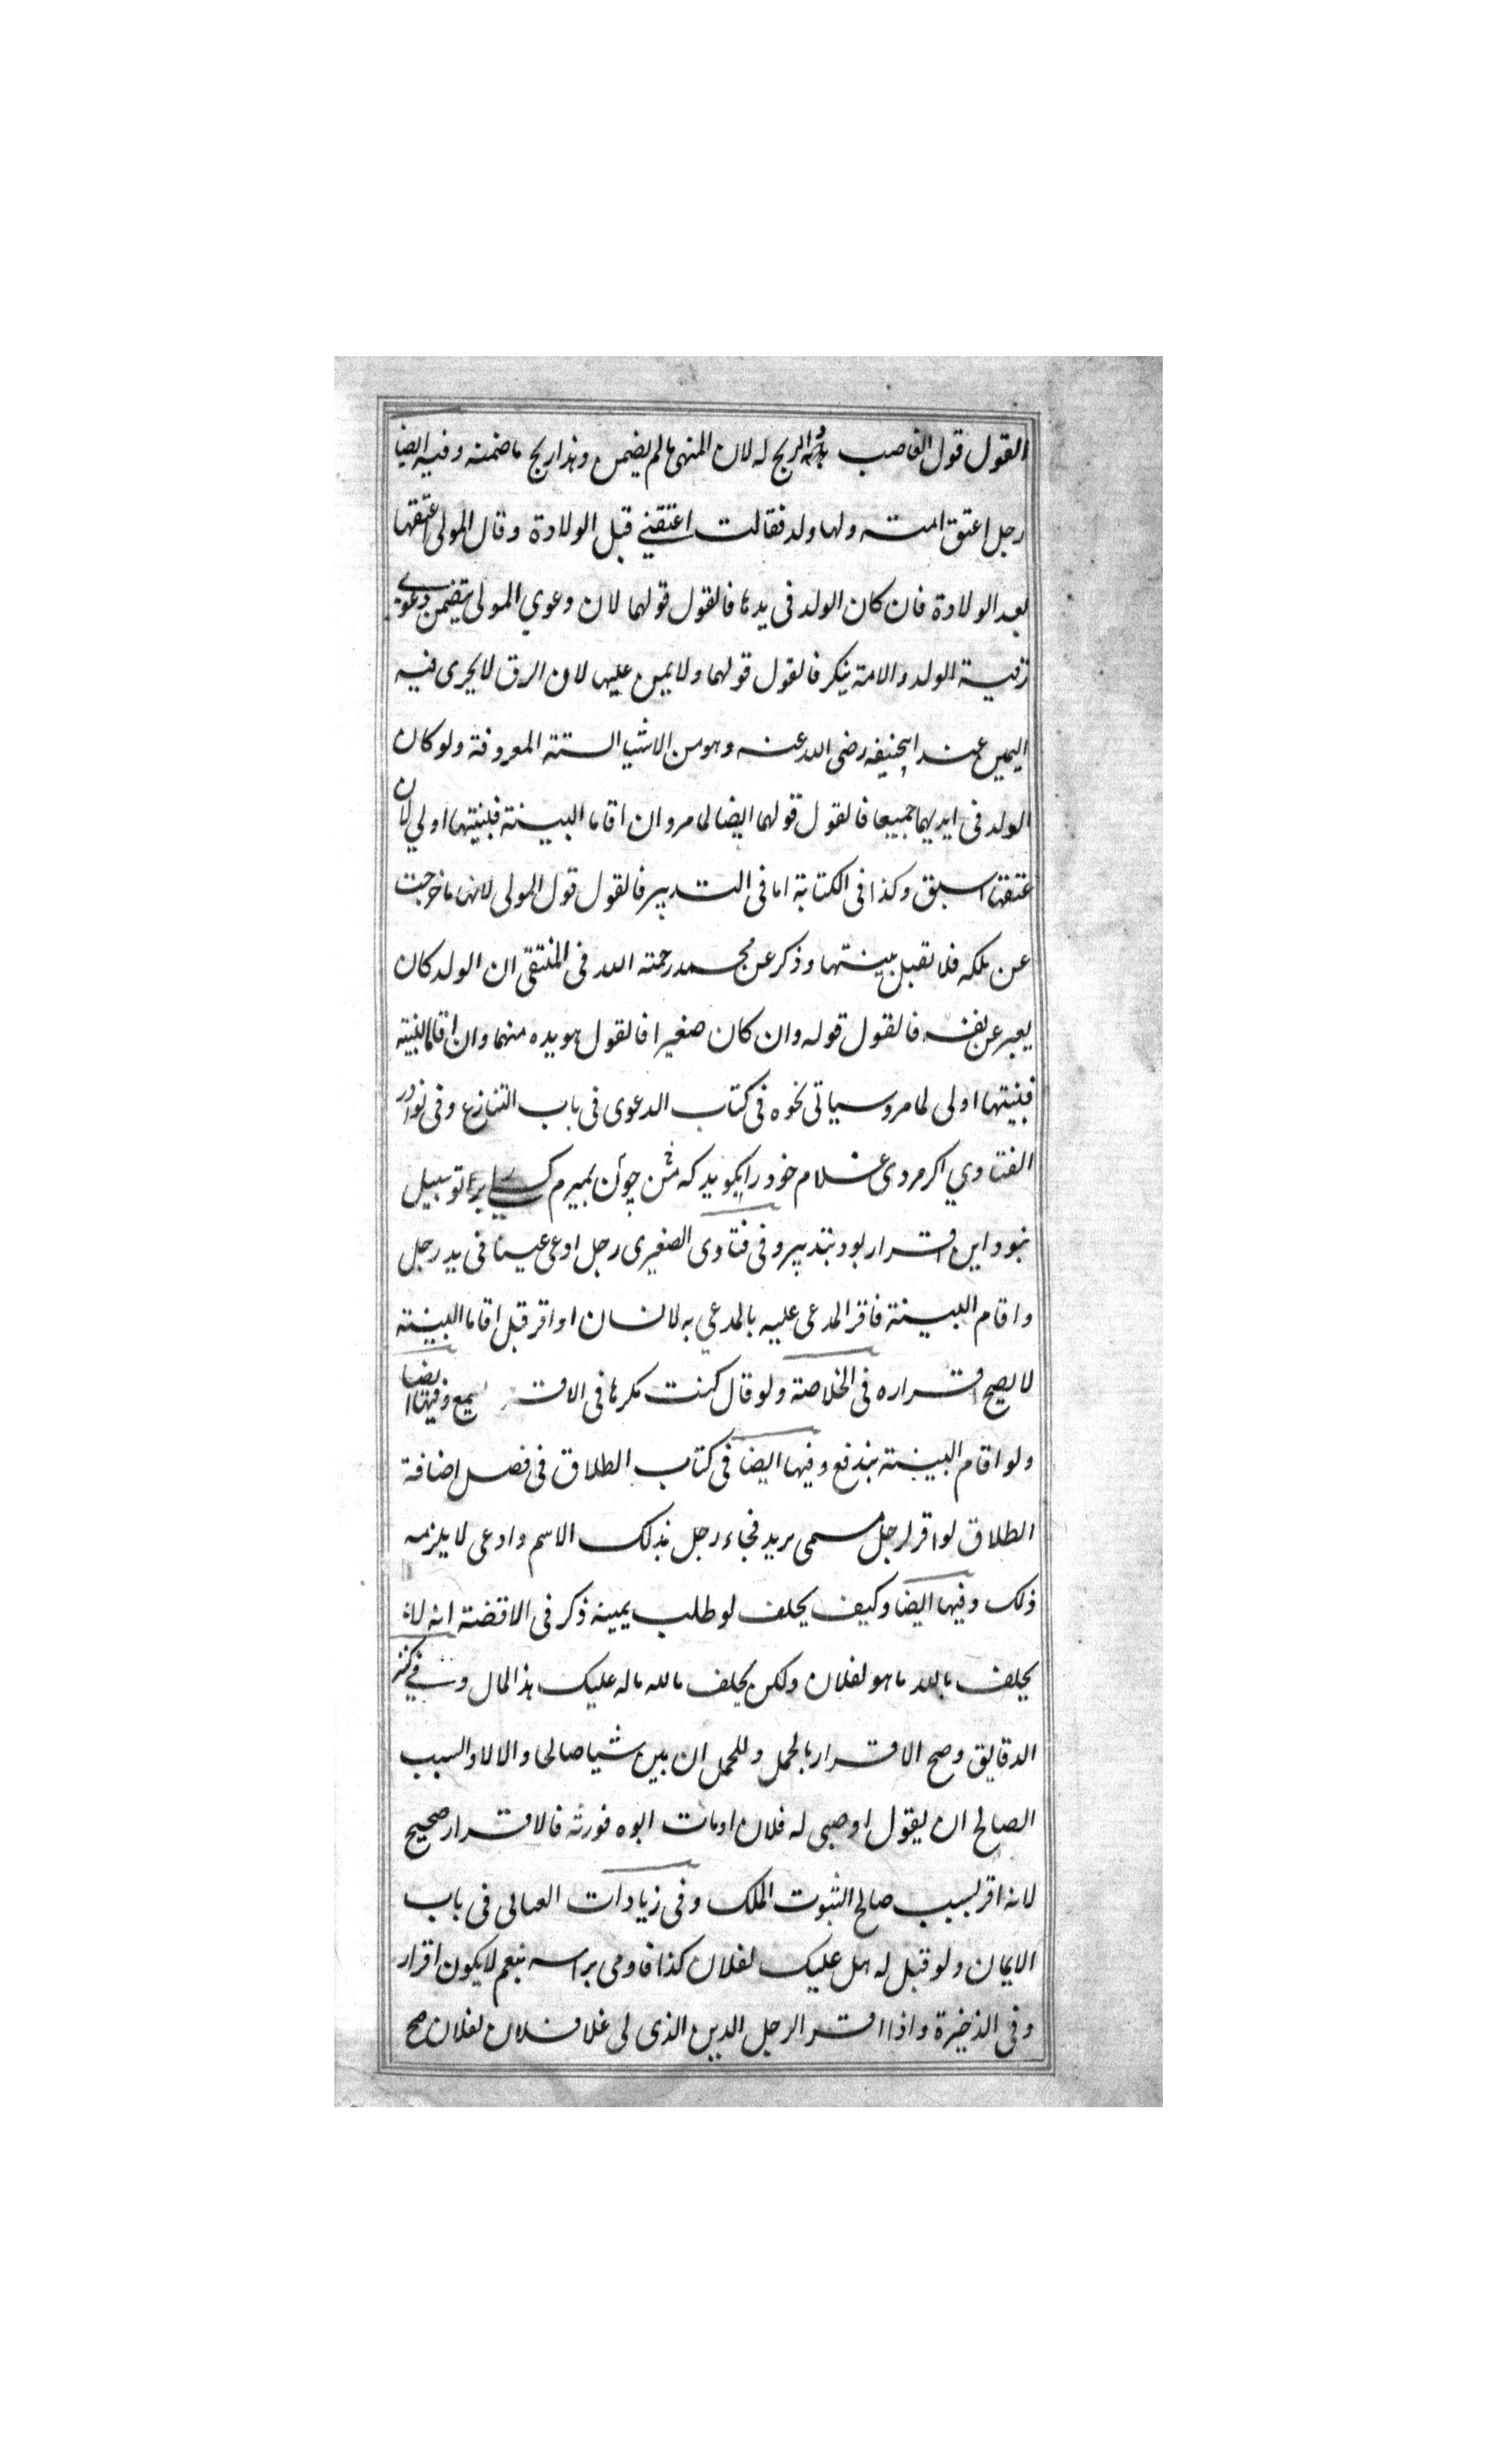 القول قول الغاصب الربح له لان المنهى ما لم يضمن وهذا ربح ما ضمنه وفيه ايضا
رجل اعتق امته ولها ولد فقالت اعتقني قبل الولادة وقال المولى اعتقتها
بعد الولادة فان كان الولد فى يدها فالقول قولهما لان دعوي المولى يتضمن دعوى
رقية الولد والامة ينكر فالقول قولهما ولا يمين عليها لان الرق لا يجرى فيه
اليمين عند ابيحنيفه رضى الله عنه وهو من الاشيا الستة المعروفة ولو كان
الولد فى ايديهما جميعا فالقول قولهما ايضا لما مر وان اقاما البينة فبينتها اولي لان
عتقها اسبق وكذا فى الكتابة اما فى التدبير فالقول قول المولى لانها ما خرجت
عن ملكه فلا تقبل بينتها وذكر عن محمد رحمة الله فى المنتقى ان الولد كان
يعبر عن نفسه فالقول قوله وان كان صغيرا فالقول هو يده منهما وان اقاما البينة
فبينتها اولى لما مر وسياتى نحوه فى كتاب الدعوى فى باب التنازع وفى نوادر
الفتاوي اكر مردى غلام خود را بكويد كه من چون بميرم كسے را بر تو سبيل
نبود اين اقرار بود بتدبير وفى فتاوى الصغيرى رجل ادعى عينا فى يد رجل
واقام البينة فاقر المدعى عليه بالمدعي به لانسان او اقر قبل اقاما البينة
لا يصح اقراره فى الخلاصة ولو قال كنت مكرها فى الاقر يسمع وفيها ايضا
ولو اقام البينة بندفع وفيها ايضا فى كتاب الطلاق فى فصل اضافة
الطلاق لو اقر لرجل مسمى بريد فجاء رجل بذلك الاسم وادعى لا يلزمه
ذلك وفيها ايضا وكيف يحلف لو طلب يمينه ذكر فى الاقضة انه لا
يحلف بالله ما هو لفلان ولكن يحلف مالله ماله عليك هذ المال وفي كنز
الدقايق وصح الاقرار بالحمل وللحمل ان بين شيا صالحا والا لا والسبب
الصالح ان يقول اوصى له فلان او مات ابوه فورثه فالاقرار صحيح
لانه اقر بسبب صالح الثبوت الملك وفى زيادات العتابى فى باب
الايمان ولو قيل له هل عليك لفلان كذا فاومى براسه بنعم لا يكون اقرار
وفى الذخيرة واذا اقر الرجل الدين الذى لى علا فلان لفلان صح